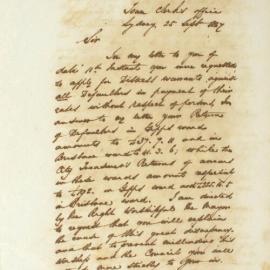 Town Clerk's Office
Sydney, 25 Sept 1857
Sir
In my letter to you of
date 11th Instant you were requested
to apply for Distress warrants against
all Defaulters in payment of their
rates without respect of persons. In
answer to my letter your Return
of Defaulters in Gipps ward
amounts to £37. 7. 11, and in
Brisbane ward to 41. 3. 6, while the
City Treasurers Returns of arrears
in these wards amounts
to £ in Gipps ward and
in Brisbane ward. I am directed
by the Right Worshipful the Mayor
to request that you will explain
the cause of this great discrepancy
and that to prevent
the Council you will